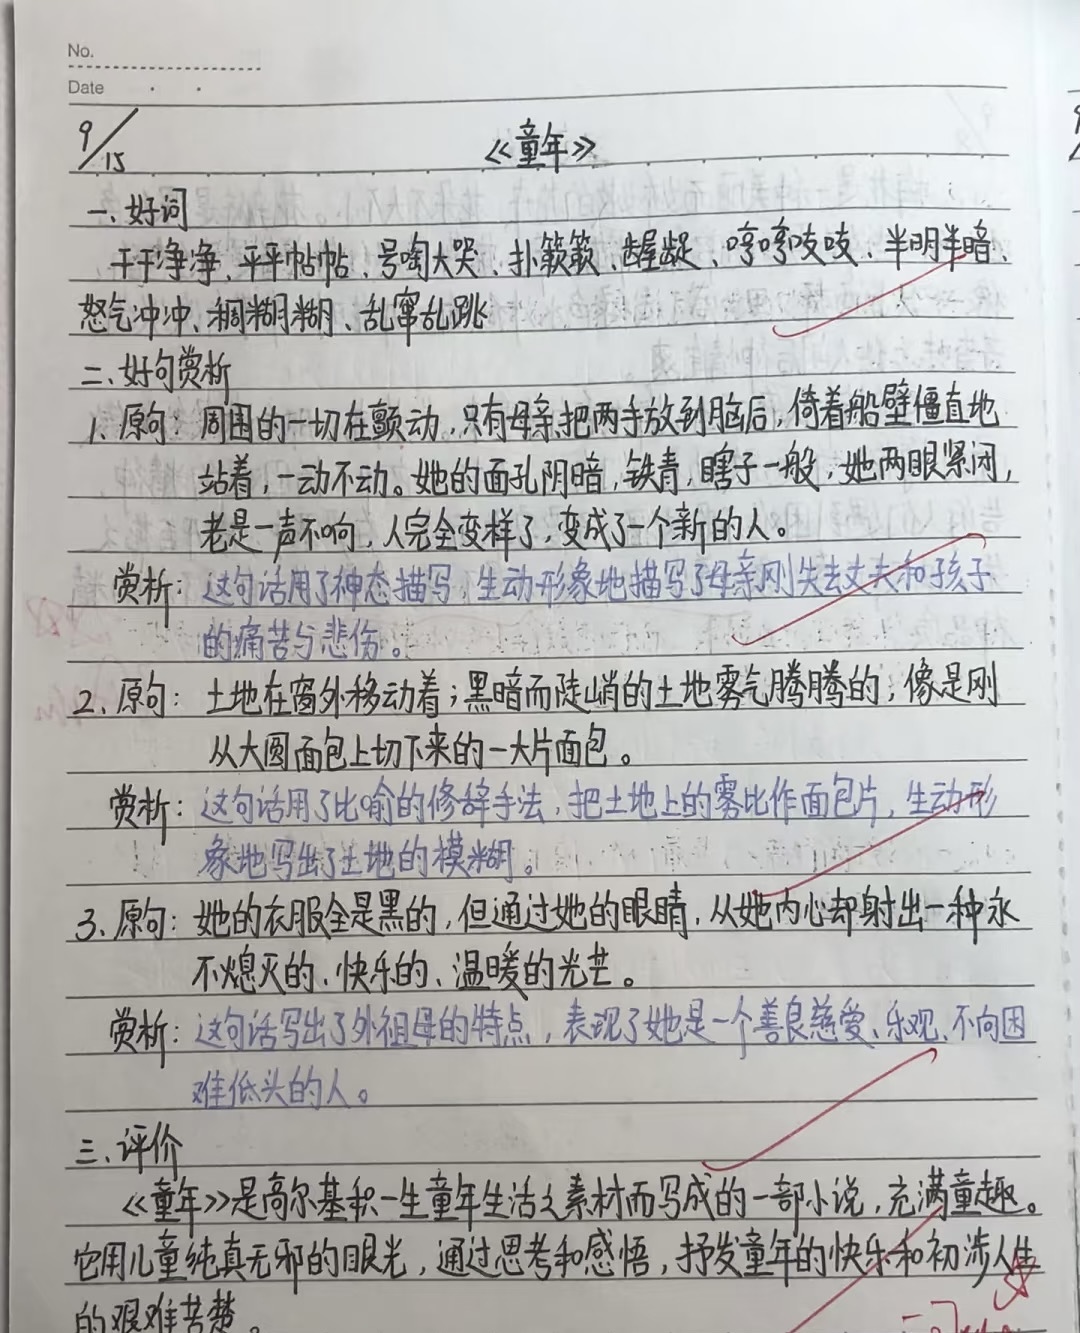 No.
Date
9/15
《童年》
一、好词
干干净净、平平帖帖、号啕大哭、扑簌簌、龌龊、哼哼吱吱、半明半暗、
怒气冲冲、稠糊糊、乱窜乱跳
二、好句赏析
1. 原句：周围的一切在颤动，只有母亲把两手放到脑后，倚着船壁僵直地
站着，一动不动。她的面孔阴暗，铁青，瞎子一般，她两眼紧闭，
老是一声不响，人完全变样了，变成了一个新的人。
赏析：这句话用了神态描写，生动形象地描写了母亲刚失去丈夫和孩子
的痛苦与悲伤。
2. 原句：土地在窗外移动着；黑暗而陡峭的土地雾气腾腾的，像是刚
从大圆面包上切下来的一大片面包。
赏析：这句话用了比喻的修辞手法，把土地上的雾比作面包片，生动形
象地写出了土地的模糊。
3. 原句：她的衣服全是黑的，但通过她的眼睛，从她内心却射出一种永
不熄灭的、快乐的、温暖的光芒。
赏析：这句话写出了外祖母的特点，表现了她是一个善良慈爱、乐观、不向困
难低头的人。
三、评价
《童年》是高尔基积一生童年生活之素材而写成的一部小说，充满童趣。
它用儿童纯真无邪的眼光，通过思考和感悟，抒发童年的快乐和初涉人生
的艰难苦楚。